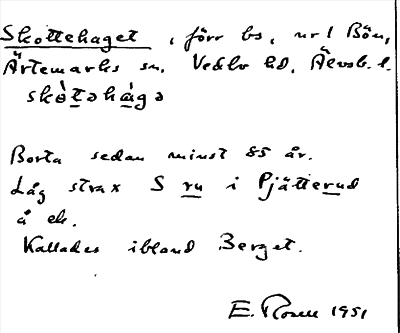 Skottehaget, förr bs, nr 1 Bön,
Ärtemarks sn, Vedbo hd, Älvsb. l.
skòtəhàgə
Borta sedan minst 85 år.
Låg strax S ru i Pjätterud
å ek.
Kallades ibland Berget.
E. Rosell 1951